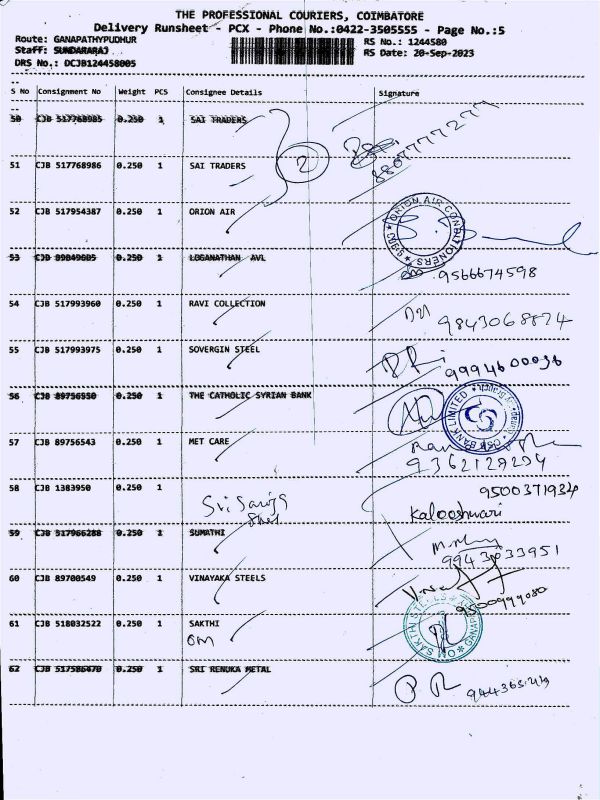 THE PROFESSIONAL COURIERS, COIMBATORE
Delivery Runsheet - PCX - Phone No.:0422-3505555 - Page No.:5
Route: GANAPATHYPUDHUR
RS No.: 1244580
Staff: SUNDARARAJ
RS Date: 20-Sep-2023
DRS No.: DCJB124458005
S No Consignment No Weight PCS Consignee Details Signature
50 CJB 517768985 0.250 1 SAI TRADERS
2
8807777277
51 CJB 517768986 0.250 1 SAI TRADERS
52 CJB 517954387 0.250 1 ORION AIR
ORION AIR CONDITIONERS
53 CJB 89849605 0.250 1 LOGANATHAN AVL
9566674598
54 CJB 517993960 0.250 1 RAVI COLLECTION
9843068874
55 CJB 517993975 0.250 1 SOVERGIN STEEL
9994600036
56 CJB 89756550 0.250 1 THE CATHOLIC SYRIAN BANK
CSB BANK LIMITED
57 CJB 89756543 0.250 1 MET CARE
9362129294
58 CJB 1383950 0.250 1
9500371934
Kalooshwari
59 CJB 517966288 0.250 1 SUMATHI
9943033951
60 CJB 89700549 0.250 1 VINAYAKA STEELS
9500999080
61 CJB 518032522 0.250 1 SAKTHI
OM
OM SAKTHI STEELS
62 CJB 517586470 0.250 1 SRI RENUKA METAL